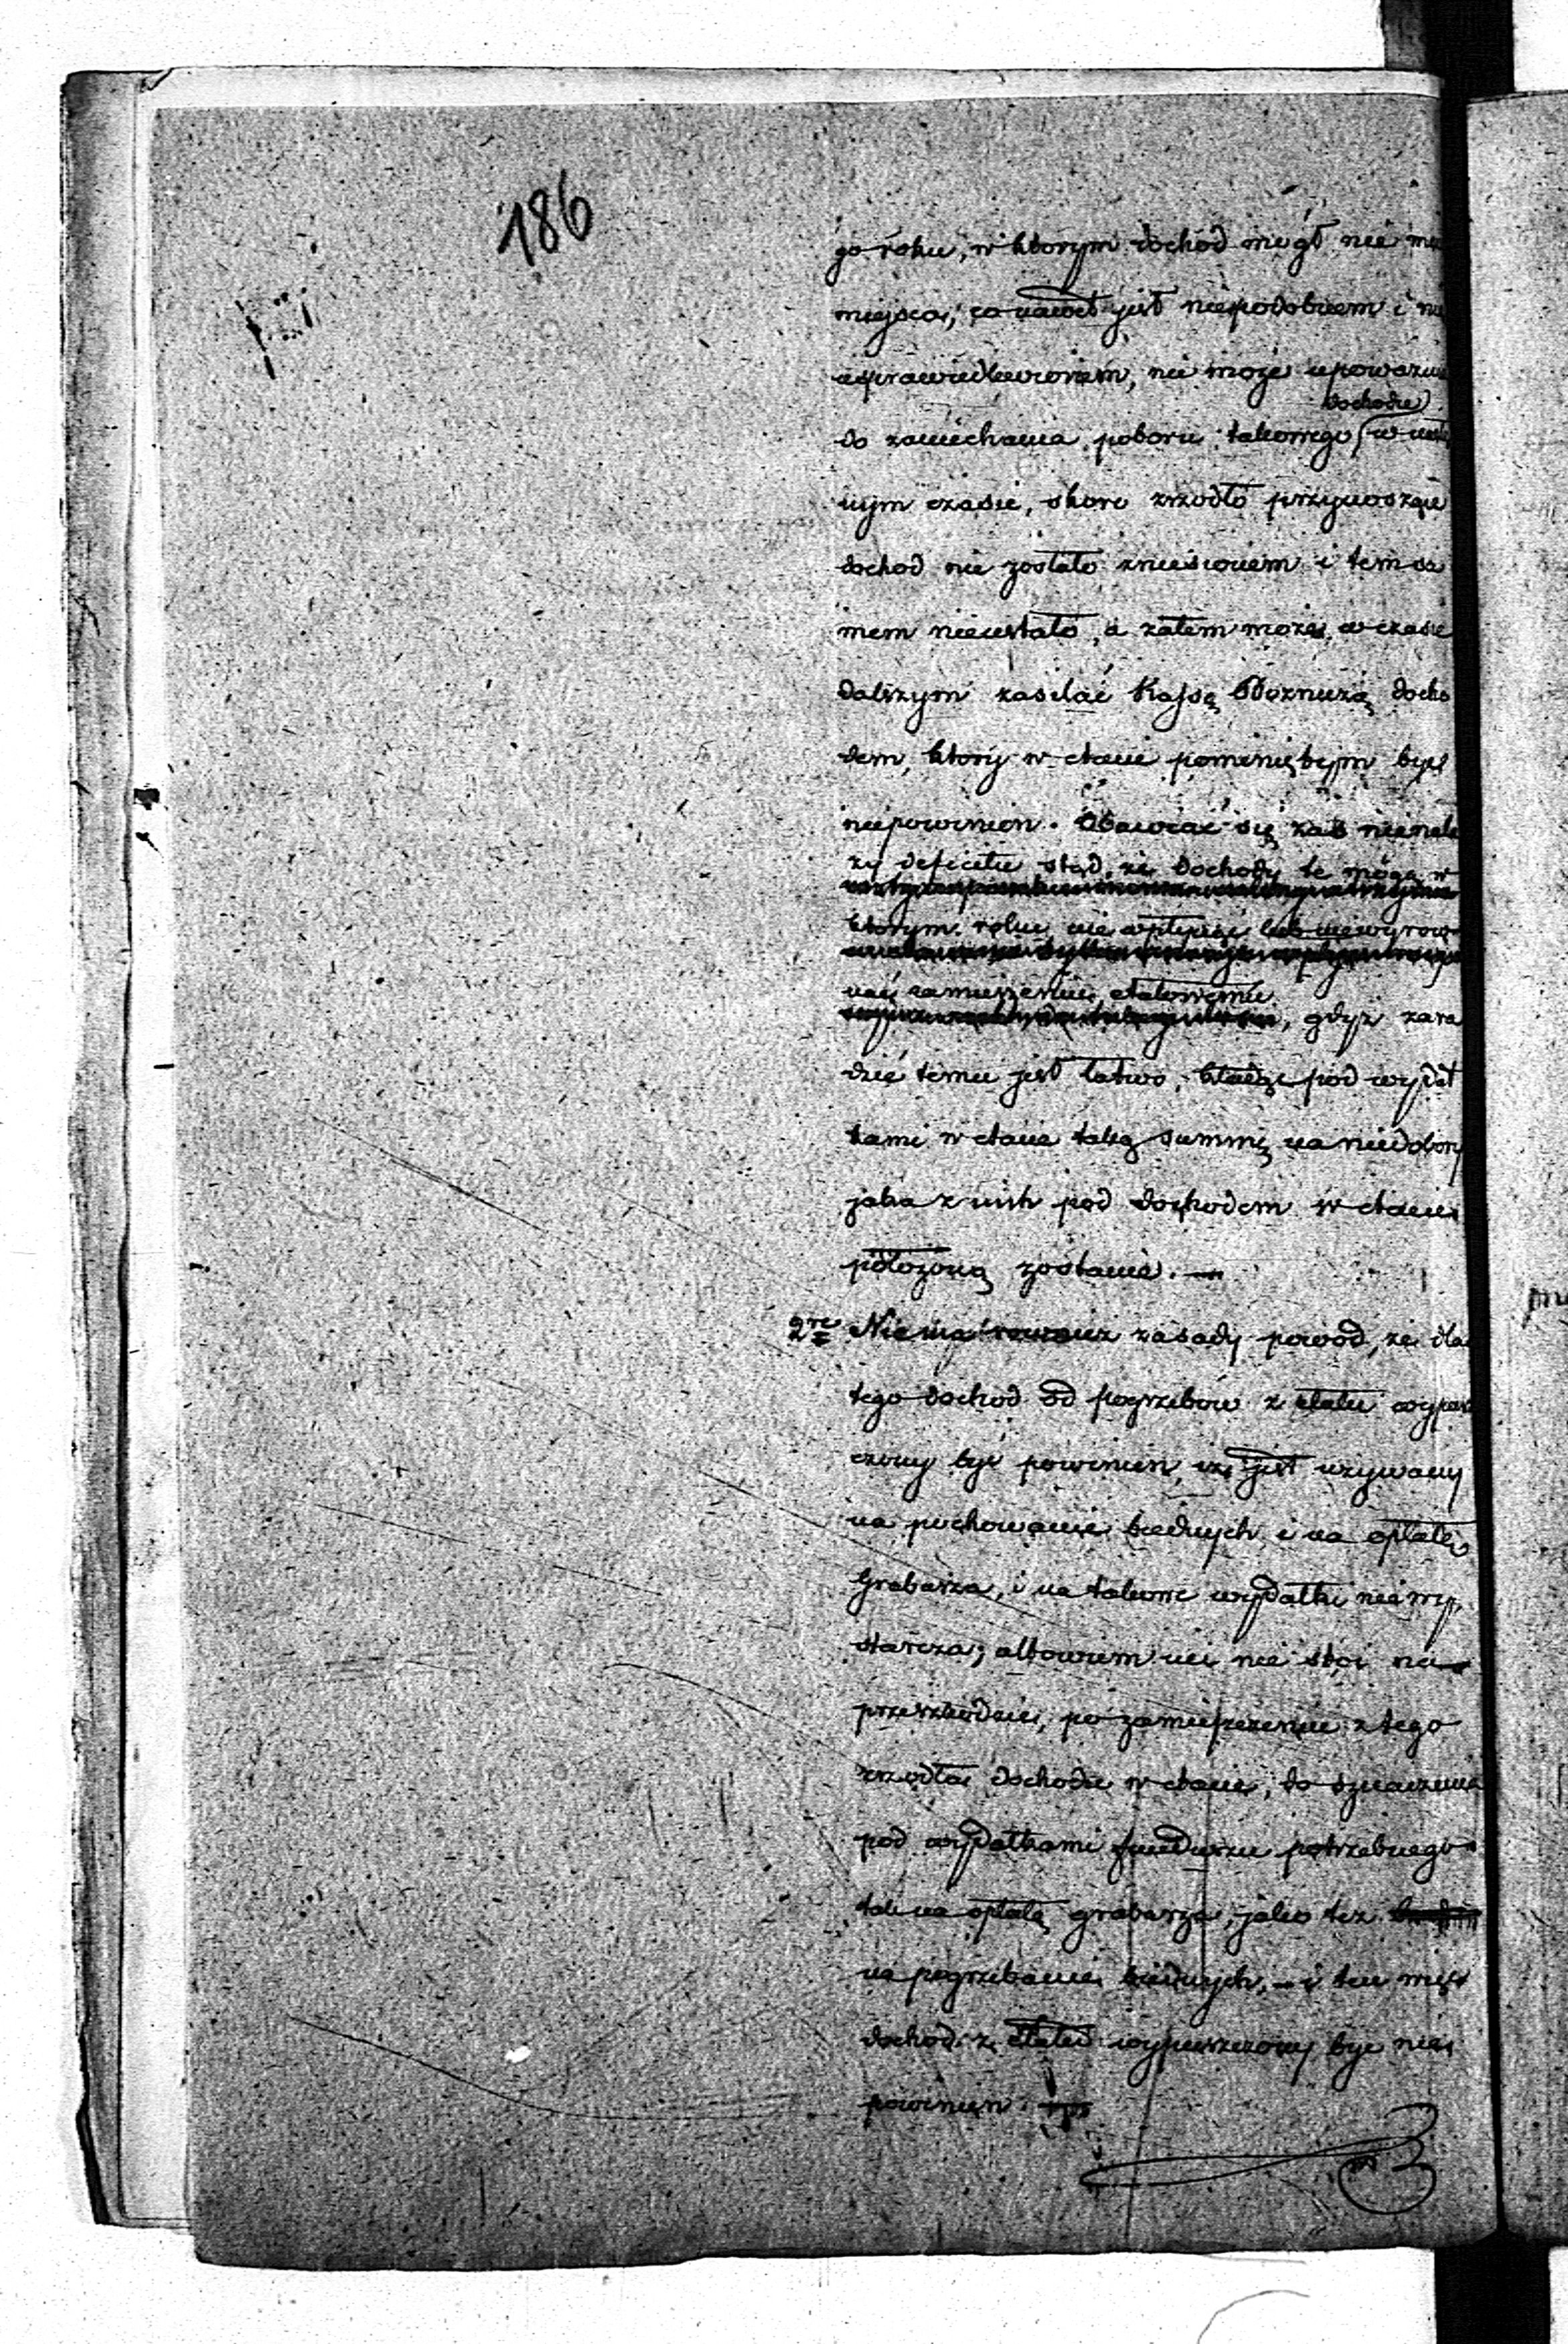 186
go roku, w ktorym dochód mógł nie
miejsca, co nawet jest niepodobnem i
usprawiedliwionem, nie może
dochodu
do zaniechania poboru takowego w
nym czasie, skoro zrzodło przynoszące
dochod nie zostało zniesionem i tem sa
mem nieustało, a zatem może w czasie
dalszym zasilać Kassę Bożniczą docho
dem, ktory w etacie pominiętym być
niepowinien. Obawiać się zaś nienale
zy deficitu stąd, że dochody te mogą w
ktorym roku nie wpłynąć lub niewyrow
nać zamieszeniu etatowemu
, gdyż zara
dzić temu jest łatwo, kładąc pod wydat
kami w etacie taką summę na niedobory
jaka z nich pod dochodem w etacie
położoną zostanie. —
2re Niema rownież zasady powód, że dla
tego dochod od pogrzebów z etatu wypusz
czony być powinien, iż jest uzywany
na pochowanie biednych i na opłatę
Grabarza, i na takowe wydatki nie wy,
starcza; albowiem nic nie stoi na
przeszkodzie, po zamieszczeniu z tego
zrzodła dochodu w etacie, do
pod wydatkami funduszu potrzebnego
tak na opłatę grabarza, jako tez
na pogrzebanie biednych, – i ten więc
dochod z etatu wypuszczony być nie
powinien.